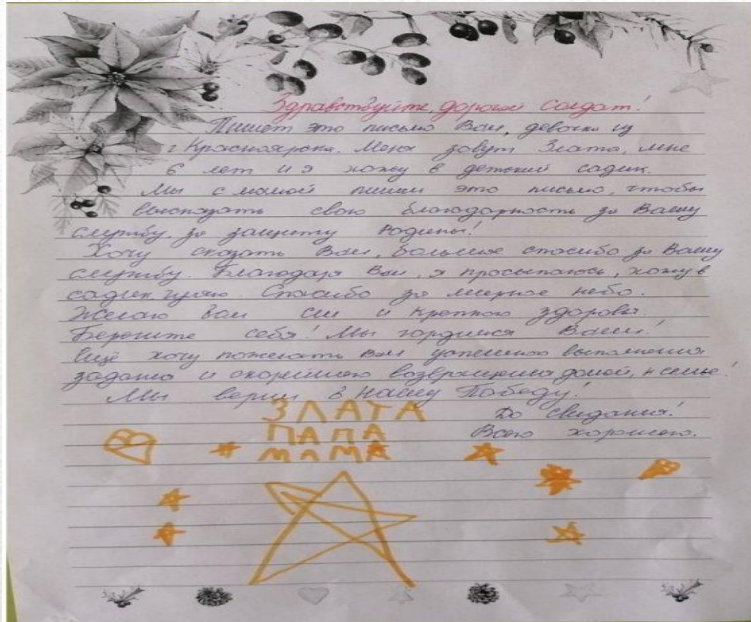 Здравствуйте, дорогой солдат!
Пишет это письмо Вам, девочка из
г Красноярска. Меня зовут Злата, мне
6 лет и я хожу в детский садик.
Мы с мамой пишем это письмо, чтобы
высказать свою благодарность за Вашу
службу, за защиту Родины!
Хочу сказать Вам, большое спасибо за Вашу
службу. Благодаря Вам, я просыпаюсь, хожу в
садик, гуляю. Спасибо за мирное небо.
Желаю Вам сил и крепкого здоровья.
Берегите себя! Мы гордимся Вами!
Ещё хочу пожелать Вам успешного выполнения
задания и скорейшего возвращения домой, к семье!
Мы верим в нашу Победу!
ЗЛАТА До свидания!
ПАПА Всего хорошего.
МАМА